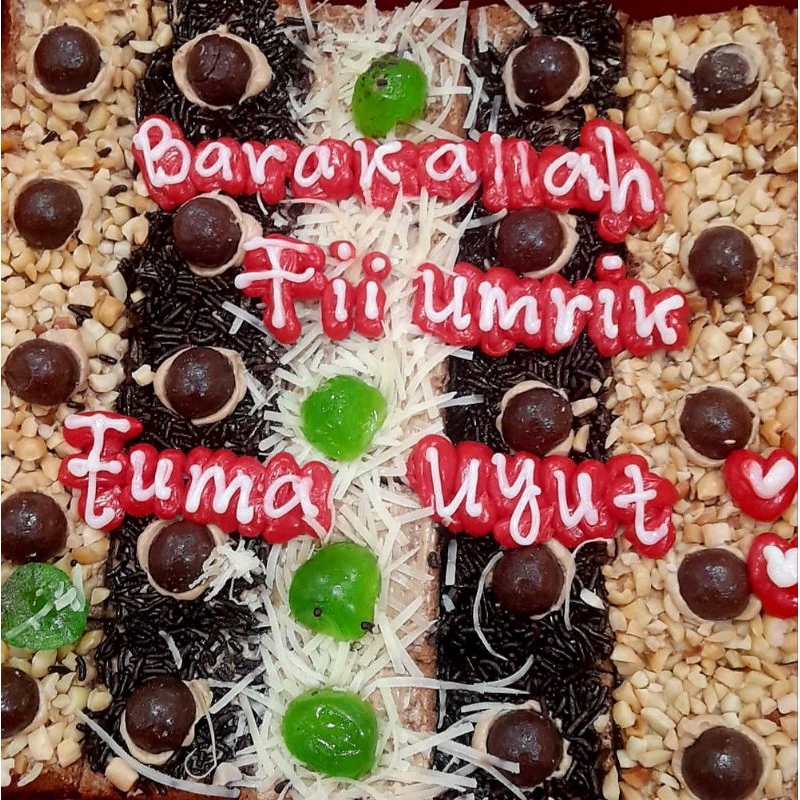 Barakallah
Fii umrik
Zuma Uyut